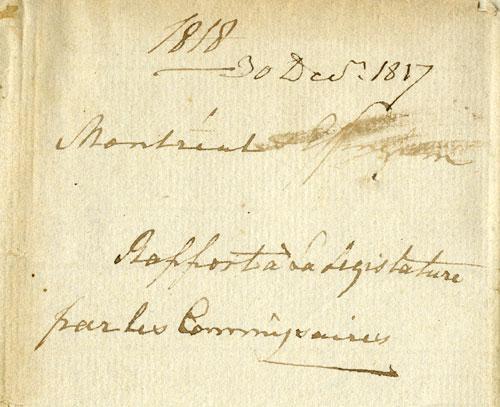 1818
30 Decr. 1817
Montréal
Rapport à La Législature
par les Commissaires